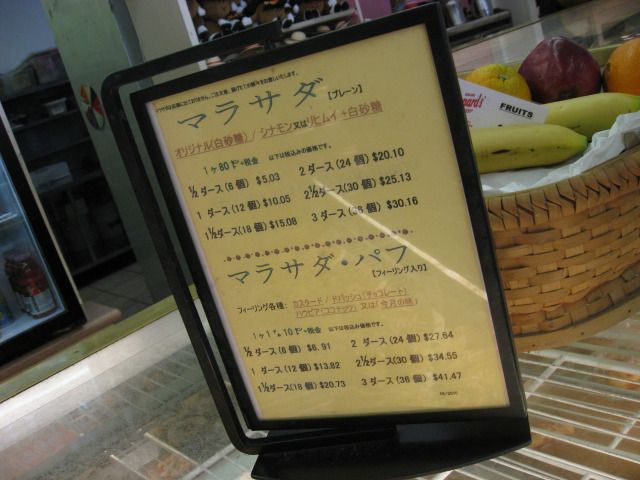 マラサダ【プレーン】
オリジナル(白砂糖) / シナモン又はリヒムイ+白砂糖
1ヶ80セント+税金 以下は税込みの価格です。
½ ダース (6 個) $5.03 2 ダース (24 個) $20.10
1 ダース (12 個) $10.05 2½ダース(30 個) $25.13
1½ダース(18 個) $15.08 3 ダース (36 個) $30.16
マラサダ・パフ
【フィーリング入り】
フィーリング各種: カスタード / ドバッシュ(チョコレート)
ハウピア(ココナッツ) 又は「今月の味」
以下は税込みの価格です。
½ ダース (6 個) $6.91 2 ダース (24 個) $27.64
1 ダース (12 個) $13.82 2½ダース(30 個) $34.55
1½ダース(18 個) $20.73 3 ダース (36 個) $41.47
FRUITS